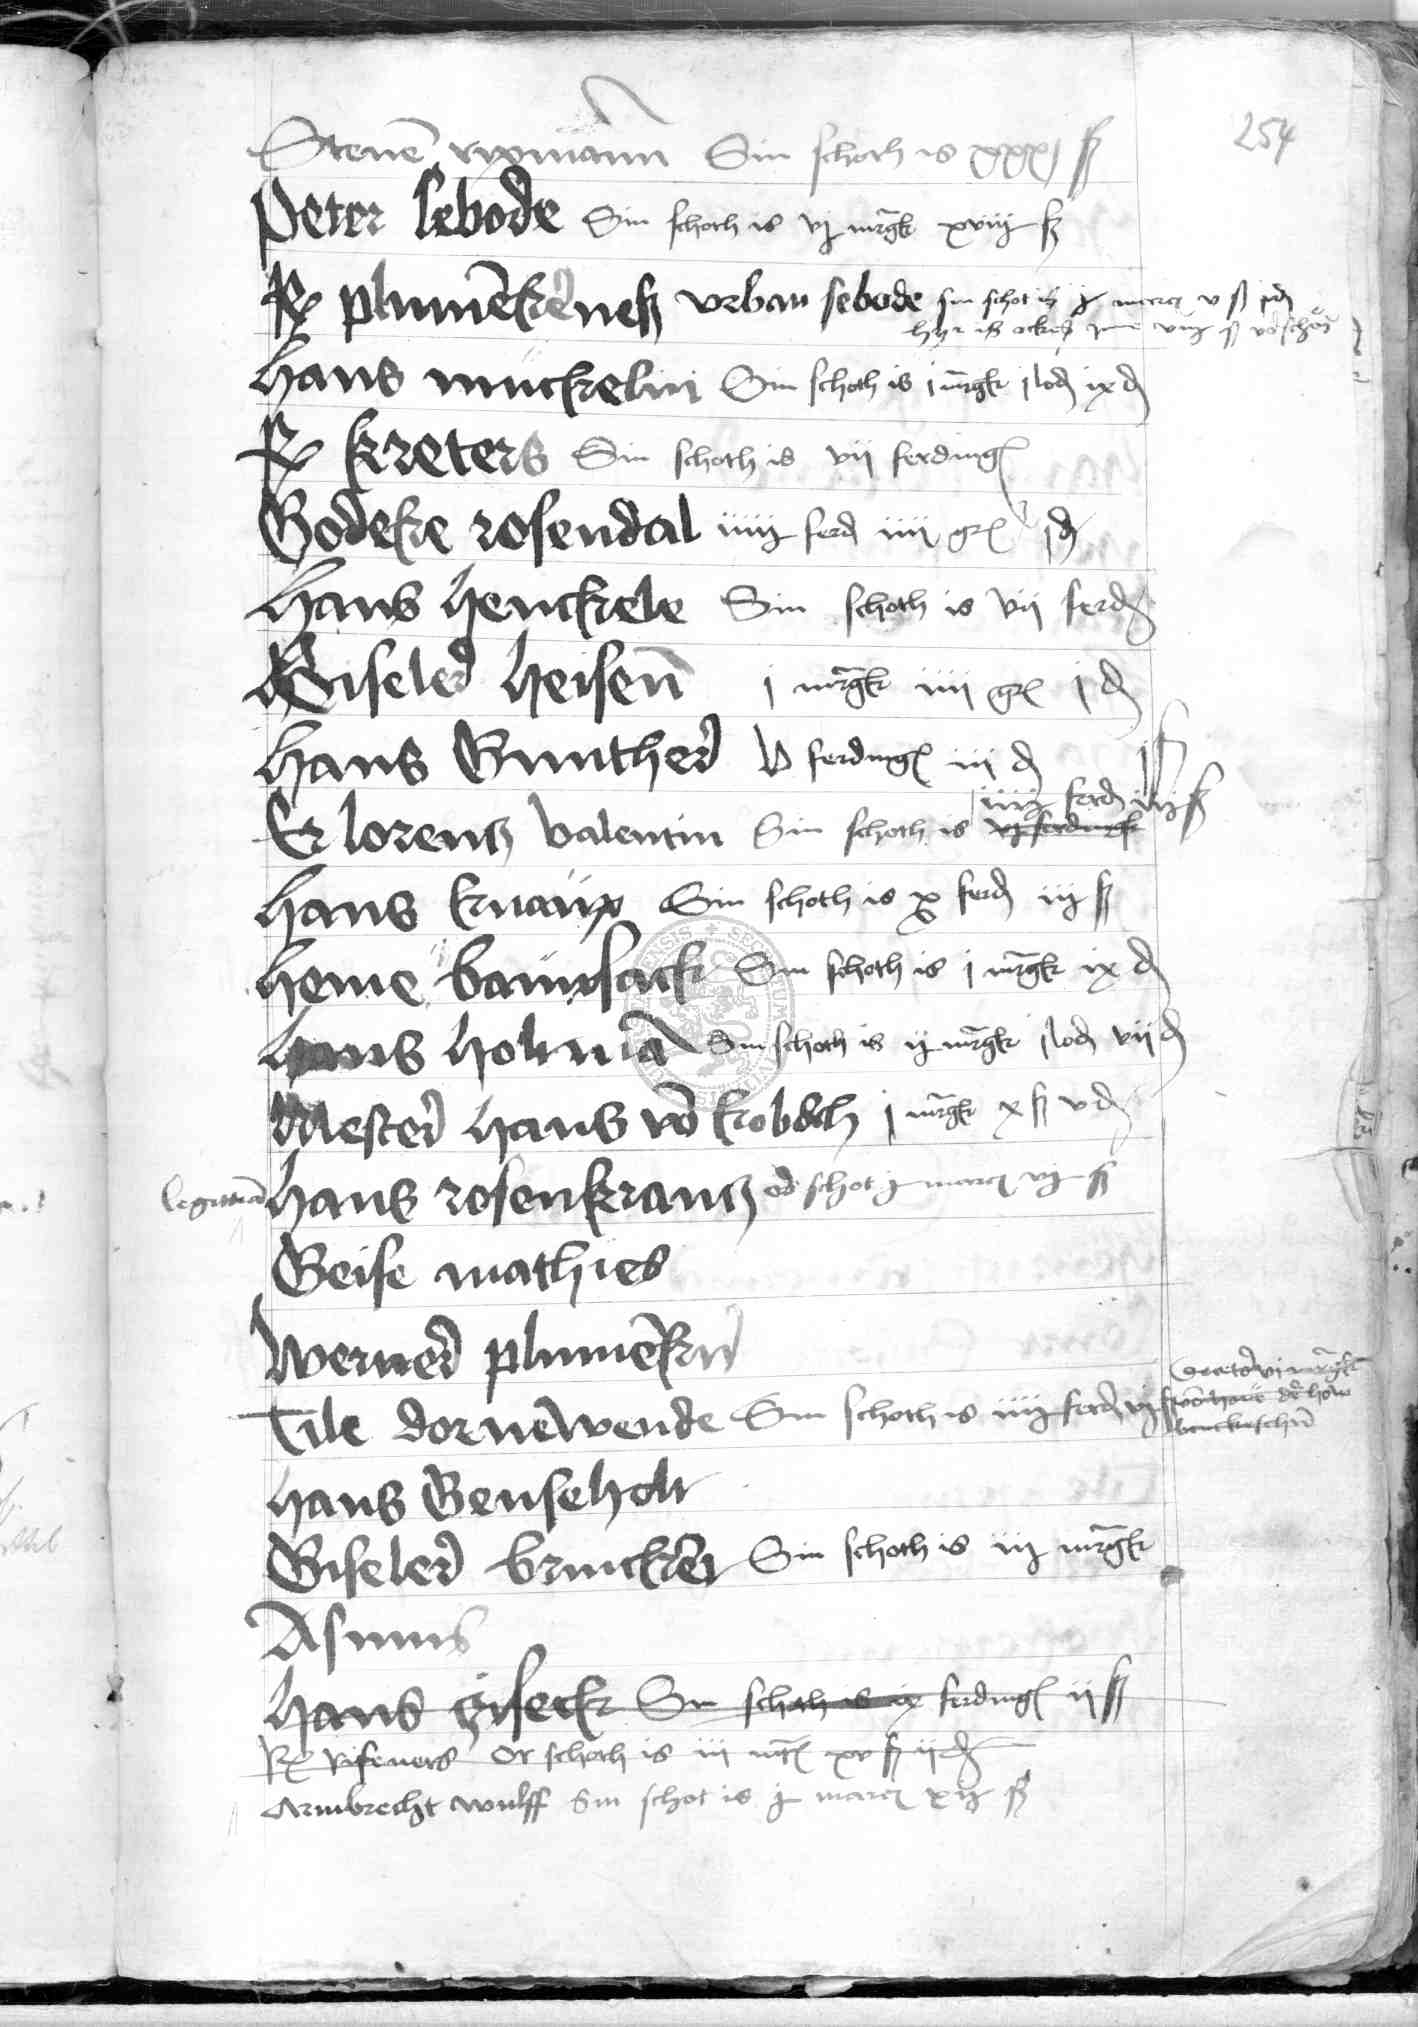 254
Steuen rypmann Sin schoth is xxxj ß
Peter sebode Sin schoth is vj mrgk xviij ß
Rx plumekenes vrban sebode sin schot is ij marc v ß j d
hyr is
Hans muckelin Sin schoth is j mrgk j lod ix d
Rx kreters Sin schoth is vii ferding
Godeke rosendal iiij ferd iiij gr j d
Hans henckele Sin schoth is vij ferd
Giseler heisen j mrgk iiij gr j d
Hans Gunther v ferding iij d j ß
iiij ferd iij ß
Er lorentz valentin Sin schoth is vj ferdingk
Hans knaup Sin schoth is x ferd iij ß
heine baursack Sin schoth is j mrgk ix d
hans holtman Sin schoth is ij mrgk j lod vij d
Mester hans vo j mrgk x ß v d
hans rosenkrantz schot ij marc vj ß
Geise mathies
Werner plumekn
Tile dornewende Sin schoth is iiij ferd vj ß
hans Genseholt
Giseler bruncken Sin schoth is iij mrgk
Asmus
hans giseck Sin schoth is ix ferding ij ß
Rx rifeners Or schoth is iij mr xv ß ij d
Armbrecht wulff Sin schot is ij marc xij ß